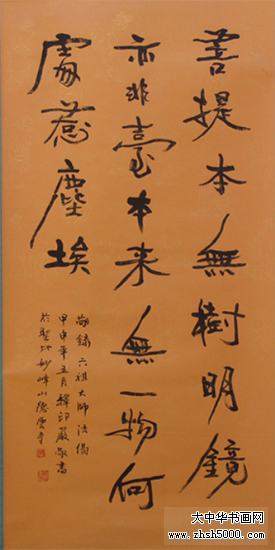 菩提本無樹明鏡
亦非臺本来無一物何
處惹塵埃
敬錄六祖大師法偈
甲申年五月釋印嚴敬書
於聖地妙峰山德雲寺
大中华书画网
www.zhsh5000.com